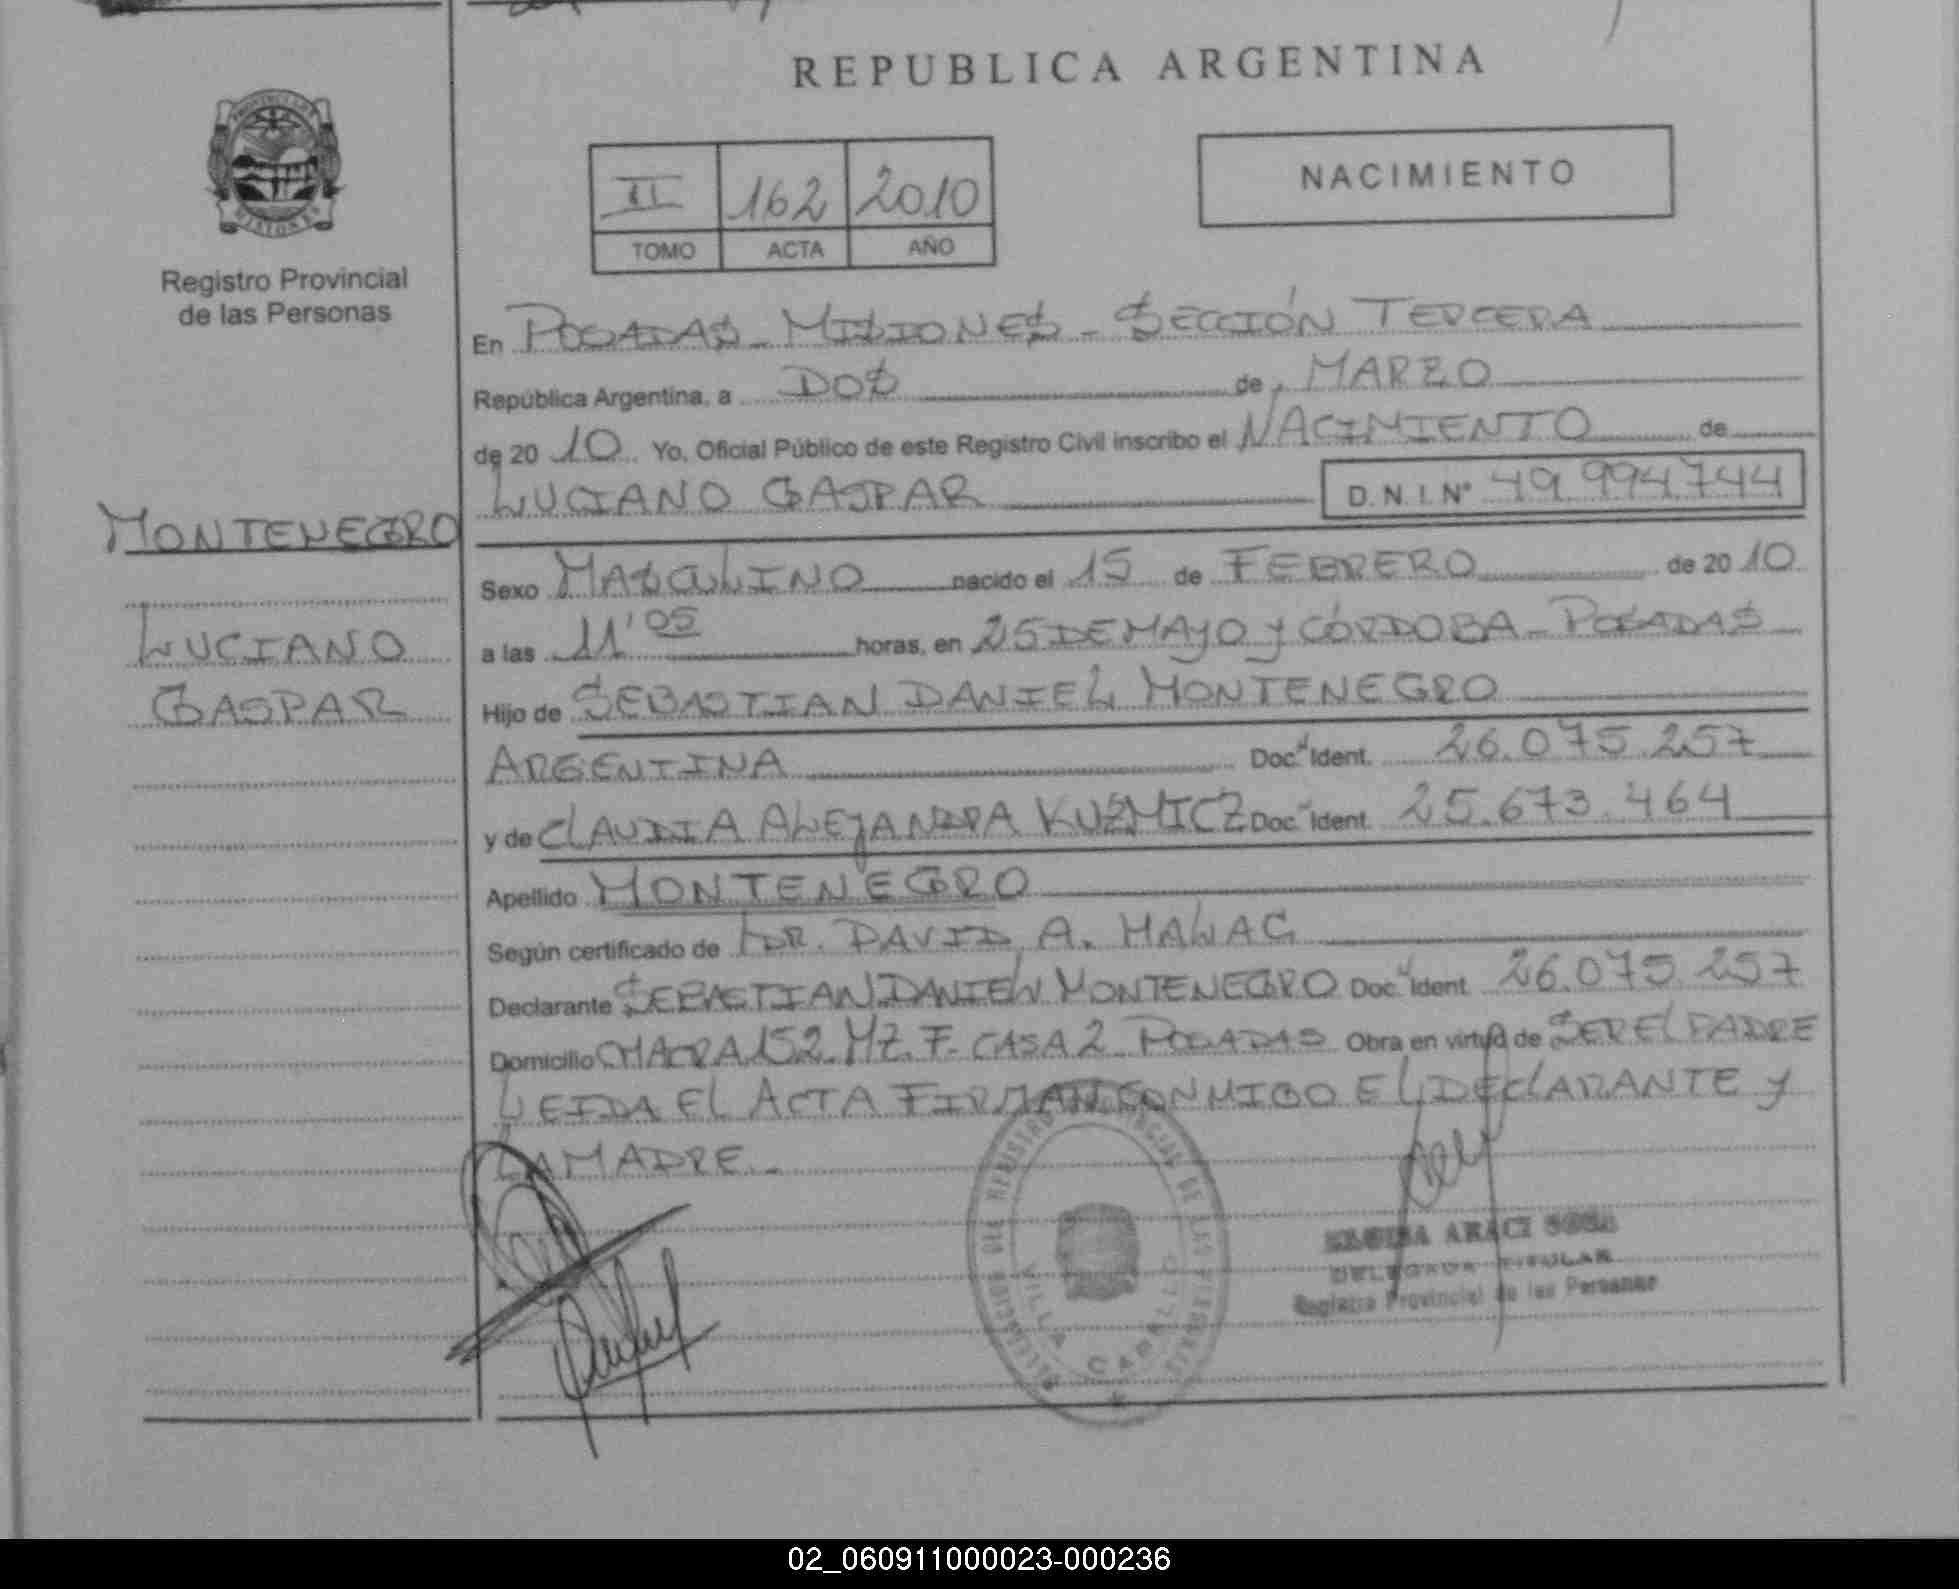 REPUBLICA ARGENTINA
PROVINCIA DE
MISIONES
Registro Provincial
de las Personas
II 162 2010
TOMO ACTA AÑO
NACIMIENTO
En POSADAS - MISIONES - SECCIÓN TERCERA
República Argentina, a DOS de MARZO
de 20 10 Yo, Oficial Público de este Registro Civil inscribo el NACIMIENTO de
LUCIANO GASPAR D.N.I. N° 49.994.744
MONTENEGRO
LUCIANO
GASPAR
Sexo MASCULINO nacido el 15 de FEBRERO de 20 10
a las 11'05 horas, en 25 DE MAYO y CÓRDOBA - POSADAS
Hijo de SEBASTIAN DANIEL MONTENEGRO
ARGENTINA Doc. Ident. 26.075.257
y de CLAUDIA ALEJANDRA KUZMICZ Doc. Ident. 25.673.464
Apellido MONTENEGRO
Según certificado de DR. DAVID A. HALAC
Declarante SEBASTIAN DANIEL MONTENEGRO Doc. Ident. 26.075.257
Domicilio CHACRA 152 MZ. F. CASA 2 POSADAS Obra en virtud de SER EL PADRE
LEIDA EL ACTA FIRMAN CONMIGO EL DECLARANTE y
LA MADRE.-
VILLA CABELLO
ARACI SOSA
DELEGADA TITULAR
Registro Provincial de las Personas
02_060911000023-000236